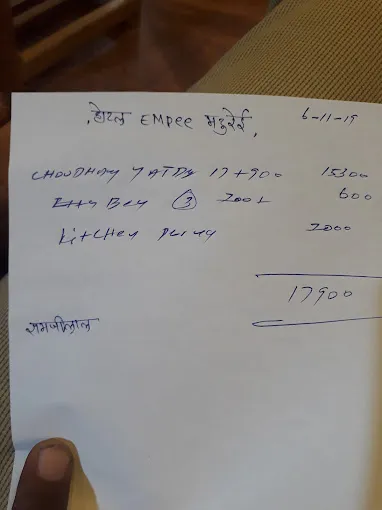 होटल EMPee मदुरई, 6-11-19
CHOUDHARY YATRA 17+900 15300
Extra Bed ③ 200x 600
Kitchen 2000
17900
रामजीलाल